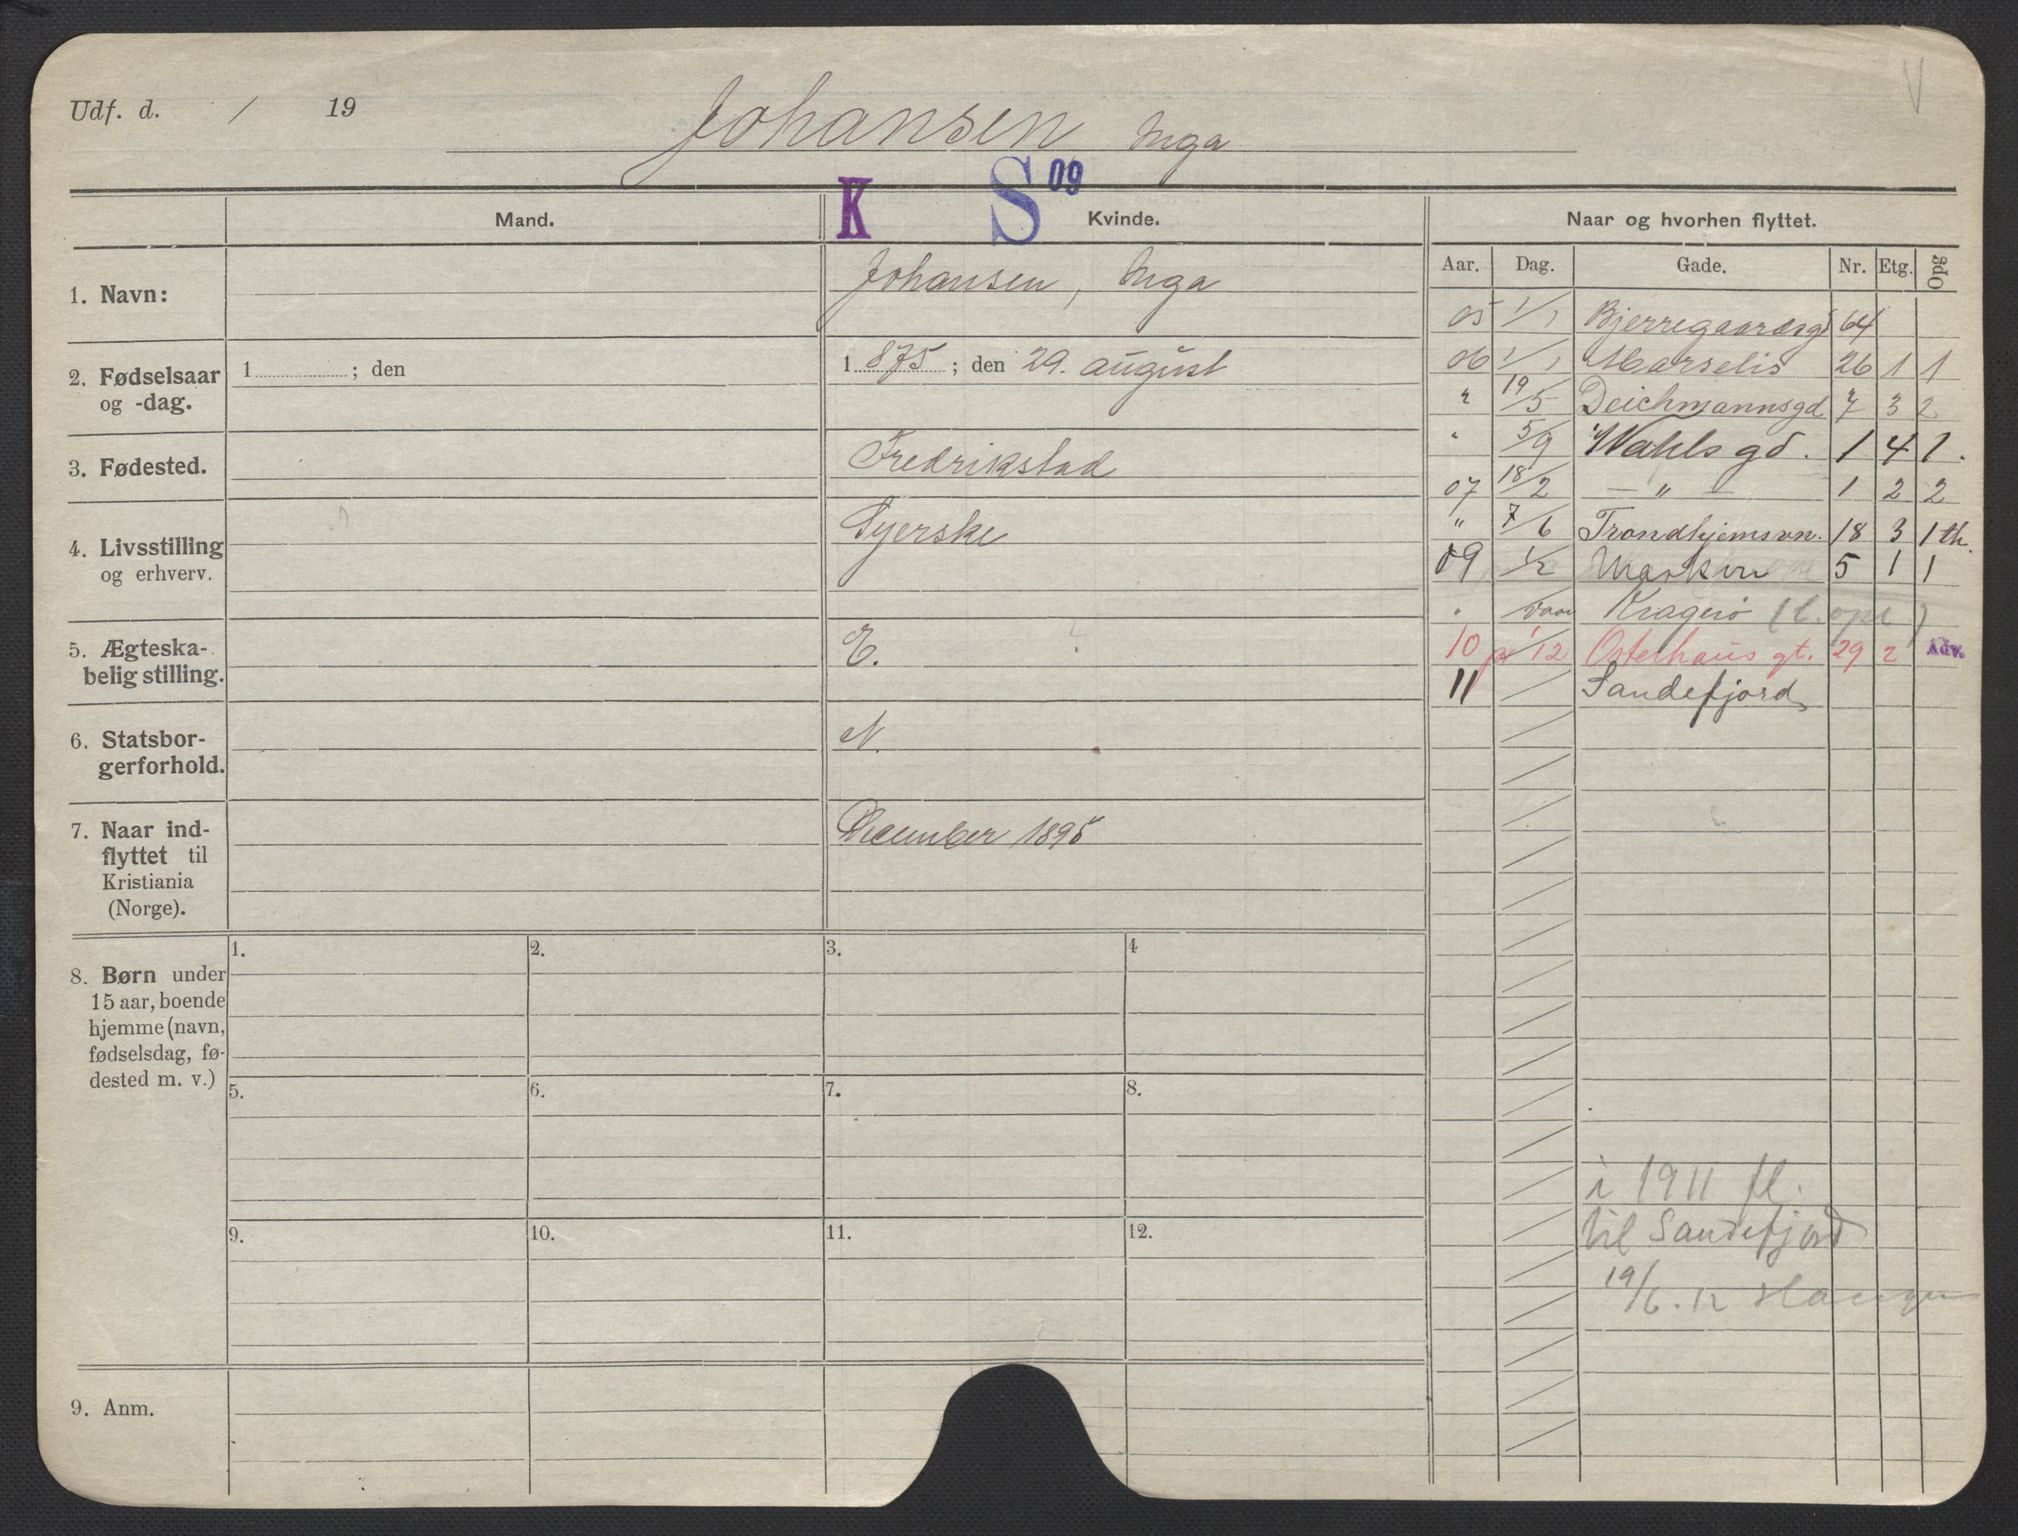 Udf. d. / 19
Johansen Inga
K S 09
Mand. Kvinde. Naar og hvorhen flyttet.
Aar. Dag. Gade. Nr. Etg. Opg
1. Navn: Johansen, Inga
2. Fødselsaar og -dag. 1 ; den 1 875 ; den 29. august
3. Fødested. Fredrikstad
4. Livsstilling og erhverv. Syerske
5. Ægteska-
belig stilling. E.
6. Statsbor-
gerforhold. N.
7. Naar ind-
flyttet til
Kristiania
(Norge). December 1895
05 1/1 Bjerregaardsgd 64
06 1/1 Marselis 26 1 1
" 19/5 Deichmannsgd 7 3 2
" 5/9 Wahls gd. 1 4 1.
07 18/2 — " — 1 2 2
" 7/6 Trondhjemsvn. 18 3 1 th.
09 1/2 Markvn 5 1 1
" vaar Kragerø (l. opl)
10 pr 1/12 Osterhaus gt. 29 2 Adv.
11 / Sandefjord
i 1911 fl.
til Sandefjord
19/6. 12
8. Børn under
15 aar, boende
hjemme (navn,
fødselsdag, fø-
dested m. v.)
1. 2. 3. 4
5. 6. 7. 8.
9. 10. 11. 12.
9. Anm.